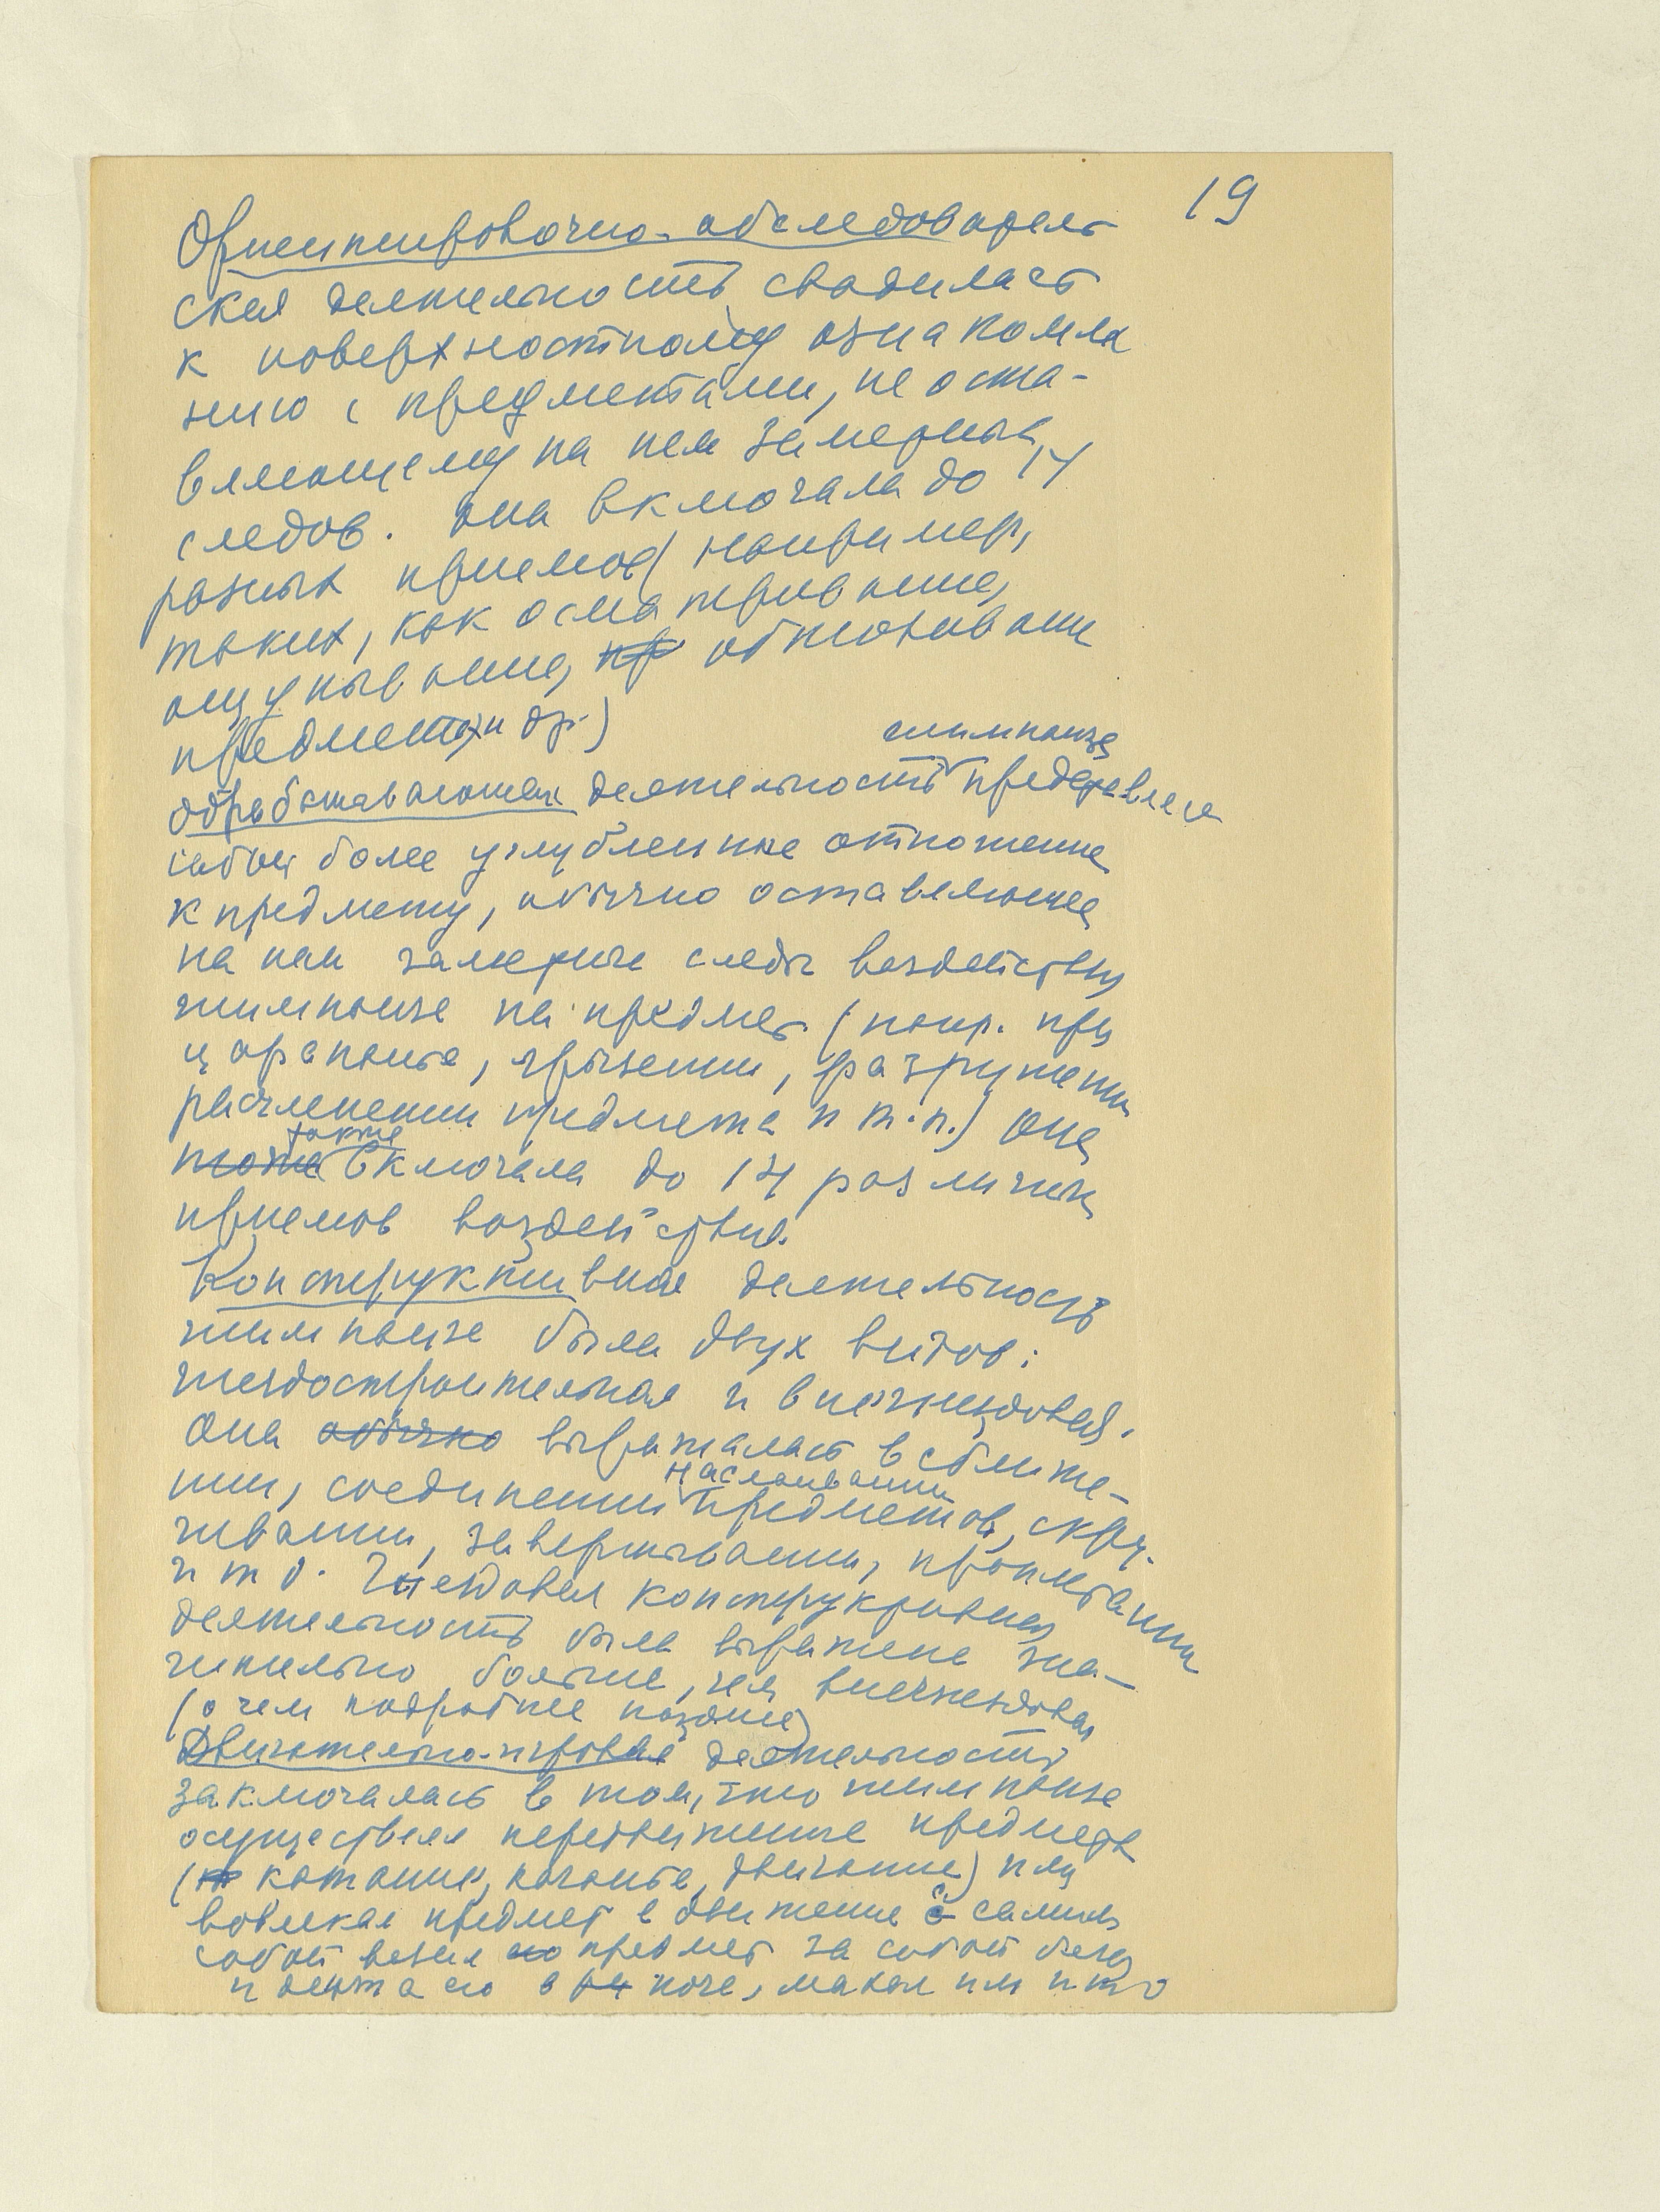 19
Ориентировочно-обследователь
ская деятельность сводилась
к поверхностному ознакомле
нию с предметами, не оста-
вляющему на нем заметных
следов. Она включала до 14
разных приемов (например,
таких, как осматривание,
ощупывание, обнюхивани
предмета и др.)
шимпанзе
обрабатывающая деятельность представляла
собой более углубленное отношение
к предмету, обычно оставляющее
на нем заметные следы воздействия
шимпанзе на предмет (напр. при
царапанье, грызении, разрушении
расчленении предмета и т.п.) Она
также
тоже включала до 14 различных
приемов воздействия.
Конструктивная деятельность
шимпанзе была двух видов:
гнездостроительная и внегнездовая.
Она обычно выражалась в сближе-
наслаивании
нии, соединении предметов, скру-
чивании, завертывании, проплетании
и т д. Гнездовая конструктивная
деятельность была выражена зна-
чительно больше, чем внегнездовая
(о чем подробнее позднее)
Двигательно-игровая деятельность
заключалась в том, что шимпанзе
осуществлял передвижение предмета
(катание, качанье, двигание) или
вовлекал предмет в движение с самим
собой возил его предмет за собой
в ноге, махал им и т д